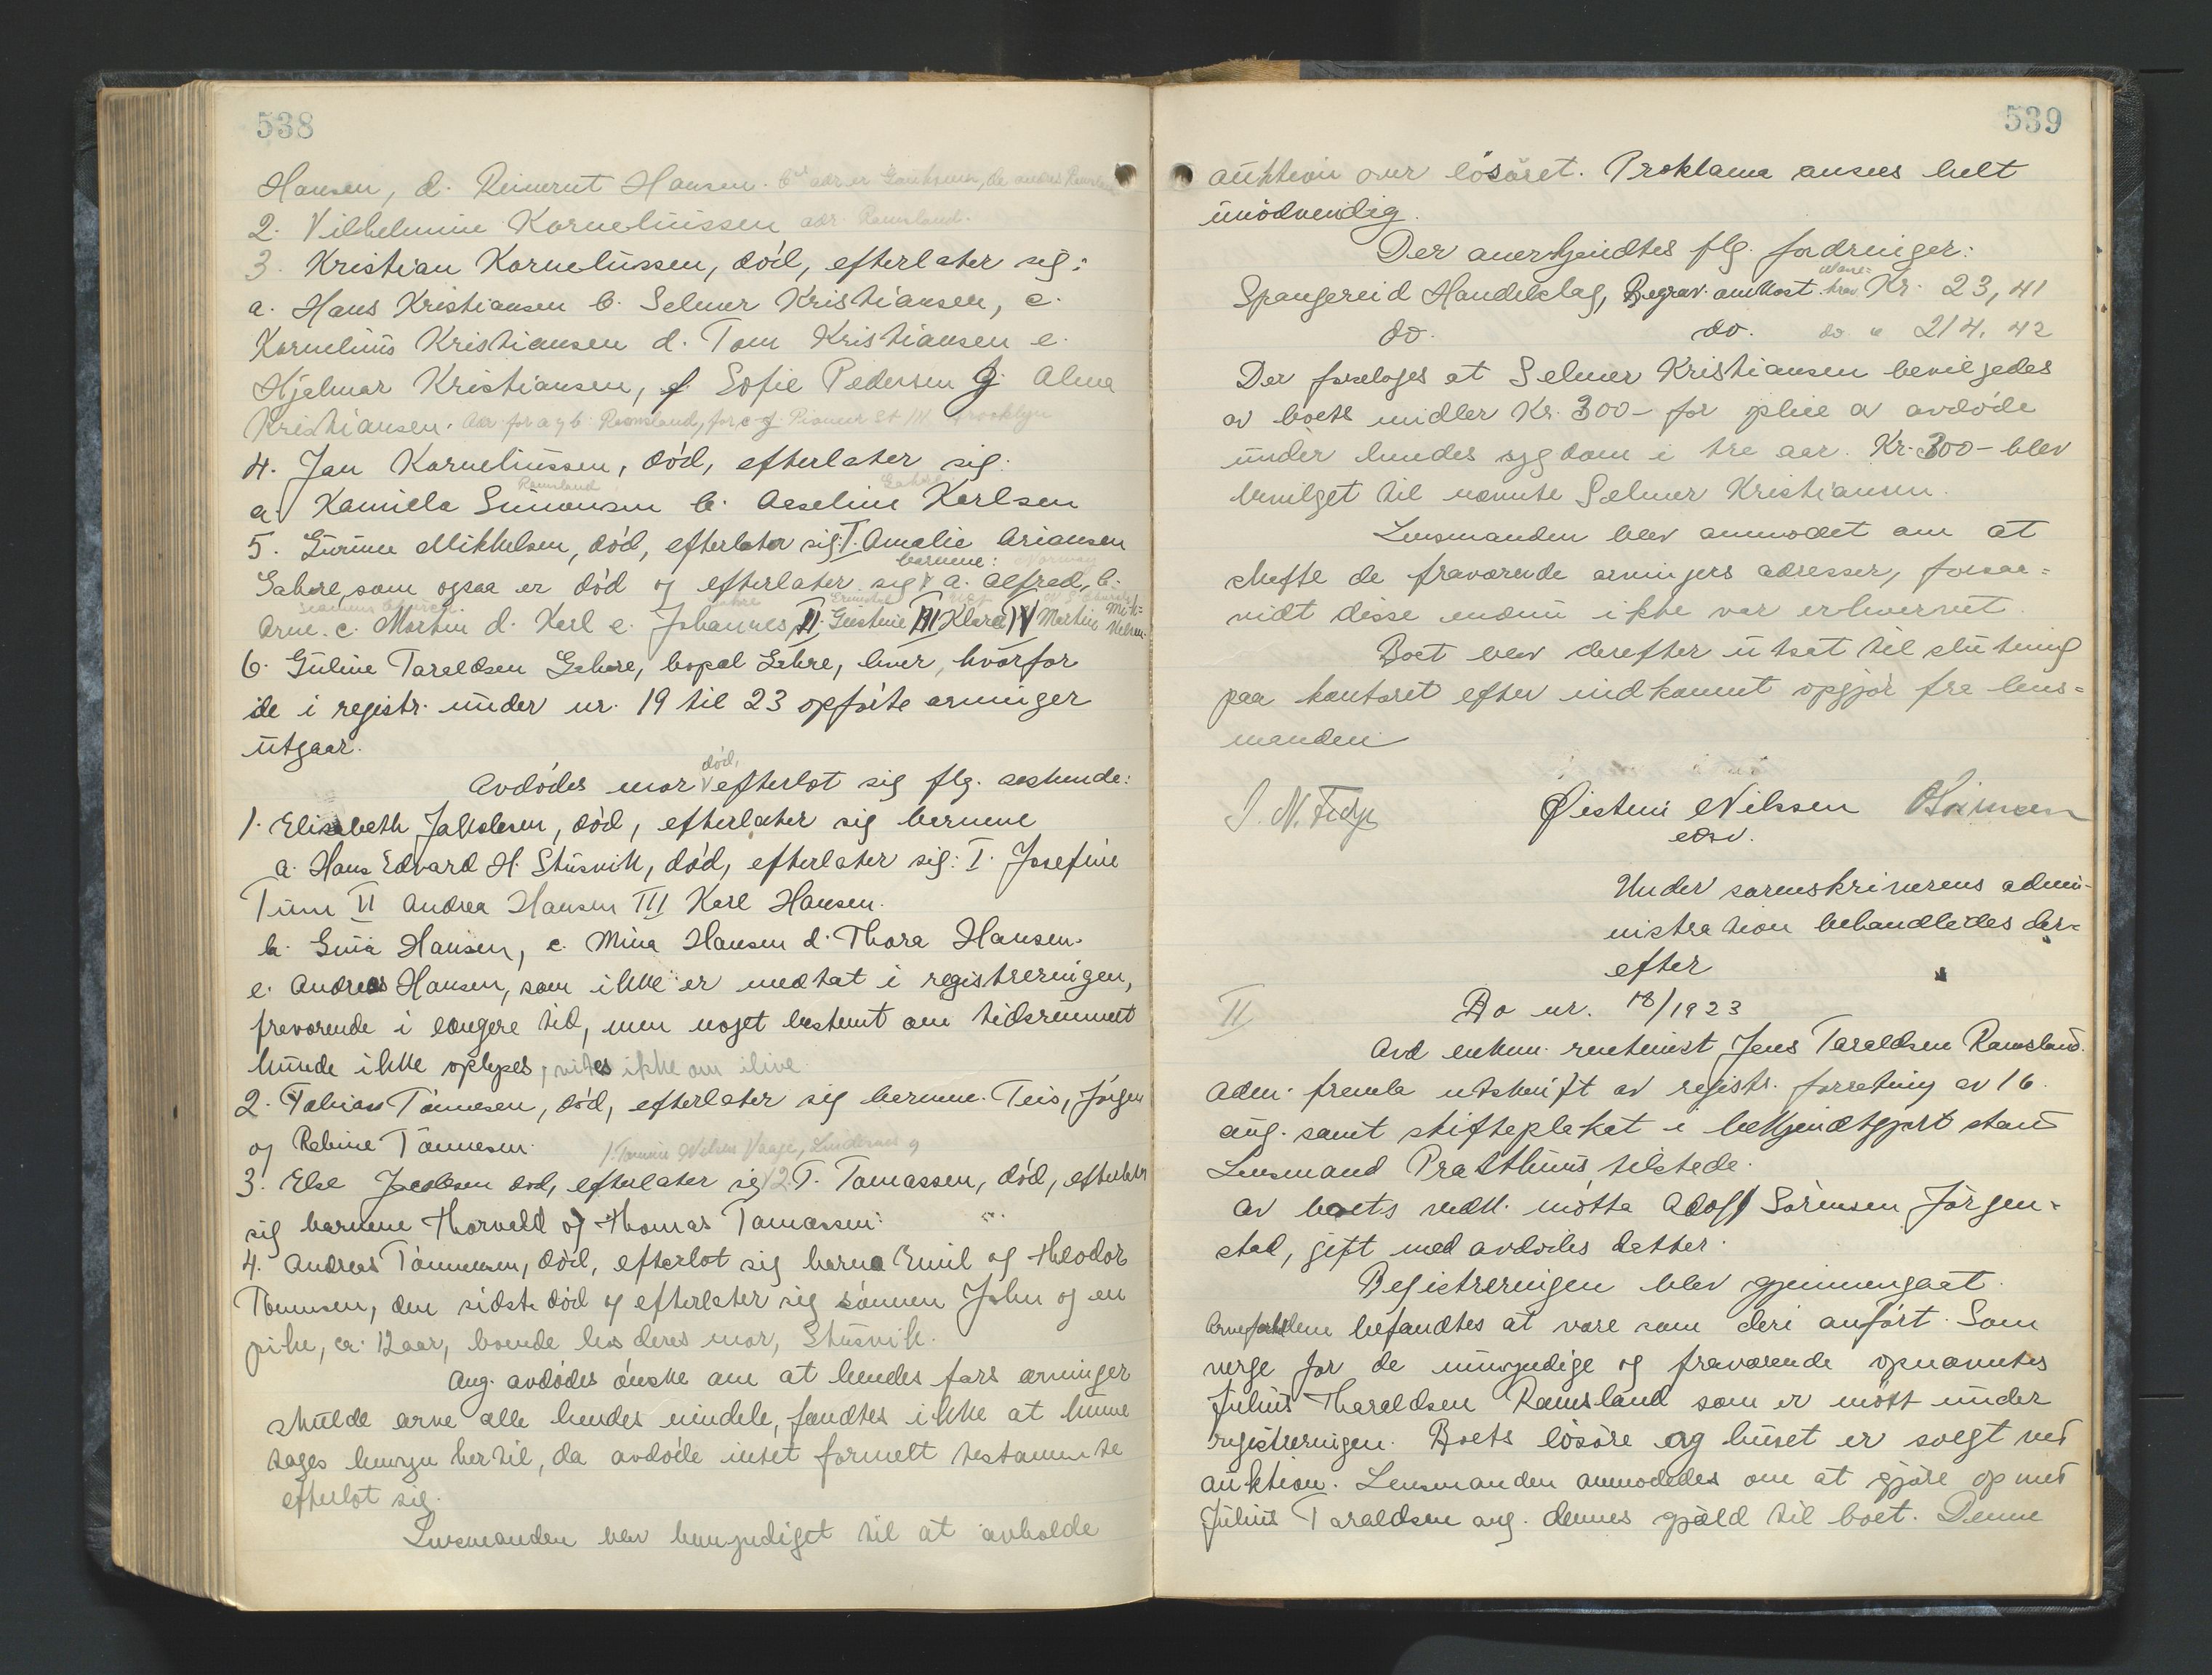 538
Hansen, d. Reinert Hansen.
2. Vilhelmine Korneliussen adr. Ramsland.
3. Kristian Korneliussen, død, efterlater sig:
a. Hans Kristiansen b. Selmer Kristiansen, c.
Kornelius Kristiansen d. Tom Kristiansen e.
Hjalmar Kristiansen, f Sofie Pedersen g. Alma
Kristiansen. Adr. for a og b. Ramsland, for c-g Pioneer St Brooklyn
4. Jan Korneliussen, død, efterlater sig:
Ramsland
a. Kamilla Simonsen b. Aseline Karlsen
5. Gurine Mikkelsen, død, efterlater sig: I. Amalie Ariansen
barnene: Norman
Gahre, som ogsaa er død og efterlater sig a. Alfred, b.
Arne. c. Martin d. Karl e. Johannes II. Gustine III Klara IV Martin Mik-
kelsen.
6. Guline Taraldsen Gahre, bopæl Gahre, hvorfor
de i registr. under nr. 19 til 23 opførte arvinger
utgaar.
død,
Avdødes mor efterlot sig flg. søskende:
1. Elisabeth Jakobsen, død, efterlater sig barnene
a. Hans Edvard H. Stusvik, død, efterlater sig: I. Josefine
II Andrea Hansen III Karl Hansen.
b. Gina Hansen, c. Mina Hansen d. Thora Hansen.
e. Andreas Hansen, som ikke er medtat i registreringen,
fraværende i længere tid, men noget bestemt om tidsrummet
kunde ikke oplyses, vites ikke om ilive
2. Tobias Tønnesen, død, efterlater sig barnene. Teis, Jørgen
og Rabine Tønnesen.
1. Nilsen Vaage, Lindesnes og
3. Else Jacobsen død, efterlater sig 2. T. Tomassen, død, efterlater
sig barnene Thorvald og Thomas Tomassen.
4. Andreas Tønnesen, død, efterlot sig barna Emil og Theodor
Tønnesen, den sidste død og efterlater sig sønnen John og en
pike, ca. 12 aar, boende hos deres mor, Stusvik.
Ang. avdødes ønske om at hendes fars arvinger
skulde arve alle hendes eiendele, fandtes ikke at kunne
tages hensyn hertil, da avdøde intet formelt testamente
efterlot sig.
Lensmanden blev bemyndiget til at avholde
539
auktion over løsøret. Proklama ansees helt
unødvendig.
Der anerkjendtes flg. fordringer:
Spangereid Handelslag, Begrav. omkost. Kr. 23,41
do. do. do " 214,42
Der foreloges at Selmer Kristiansen bevilgedes
av boets midler Kr. 300- for pleie av avdøde
under hendes sygdom i tre aar. Kr. 300- blev
bevilget til nevnte Selmer Kristiansen.
Lensmanden blev anmodet om at
skaffe de fraværende arvingers adresser, forsaa-
vidt disse endnu ikke var erhvervet.
Boet blev derefter utsat til slutning
paa kontoret efter indkommet opgjør fra lens-
manden
Øistein Nilssen
edsv.
Under sorenskriverens admi-
nistration behandledes der-
efter
II
Bo nr. 18/1923
Avd enkem. rentenist Jens Taraldsen Ramsland.
Adm. fremla utskrift av registr. forretning av 16.
aug. samt skifteplakat i bekjendtgjort stand
Lensmand Præsthuus tilstede.
Av boets vedk. møtte Adolf Sørensen Jørgen-
stad, gift med avdødes datter.
Registreringen blev gjennemgaat.
Arveforholdene befandtes at være som deri anført. Som
verge for de umyndige og fraværende opnævntes
Julius Tharaldsen Ramsland som er møtt under
registreringen. Boets løsøre og huset er solgt ved
auktion. Lensmanden anmodedes om at gjøre op med
Julius Taraldsen ang. dennes gjæld til boet. Denne